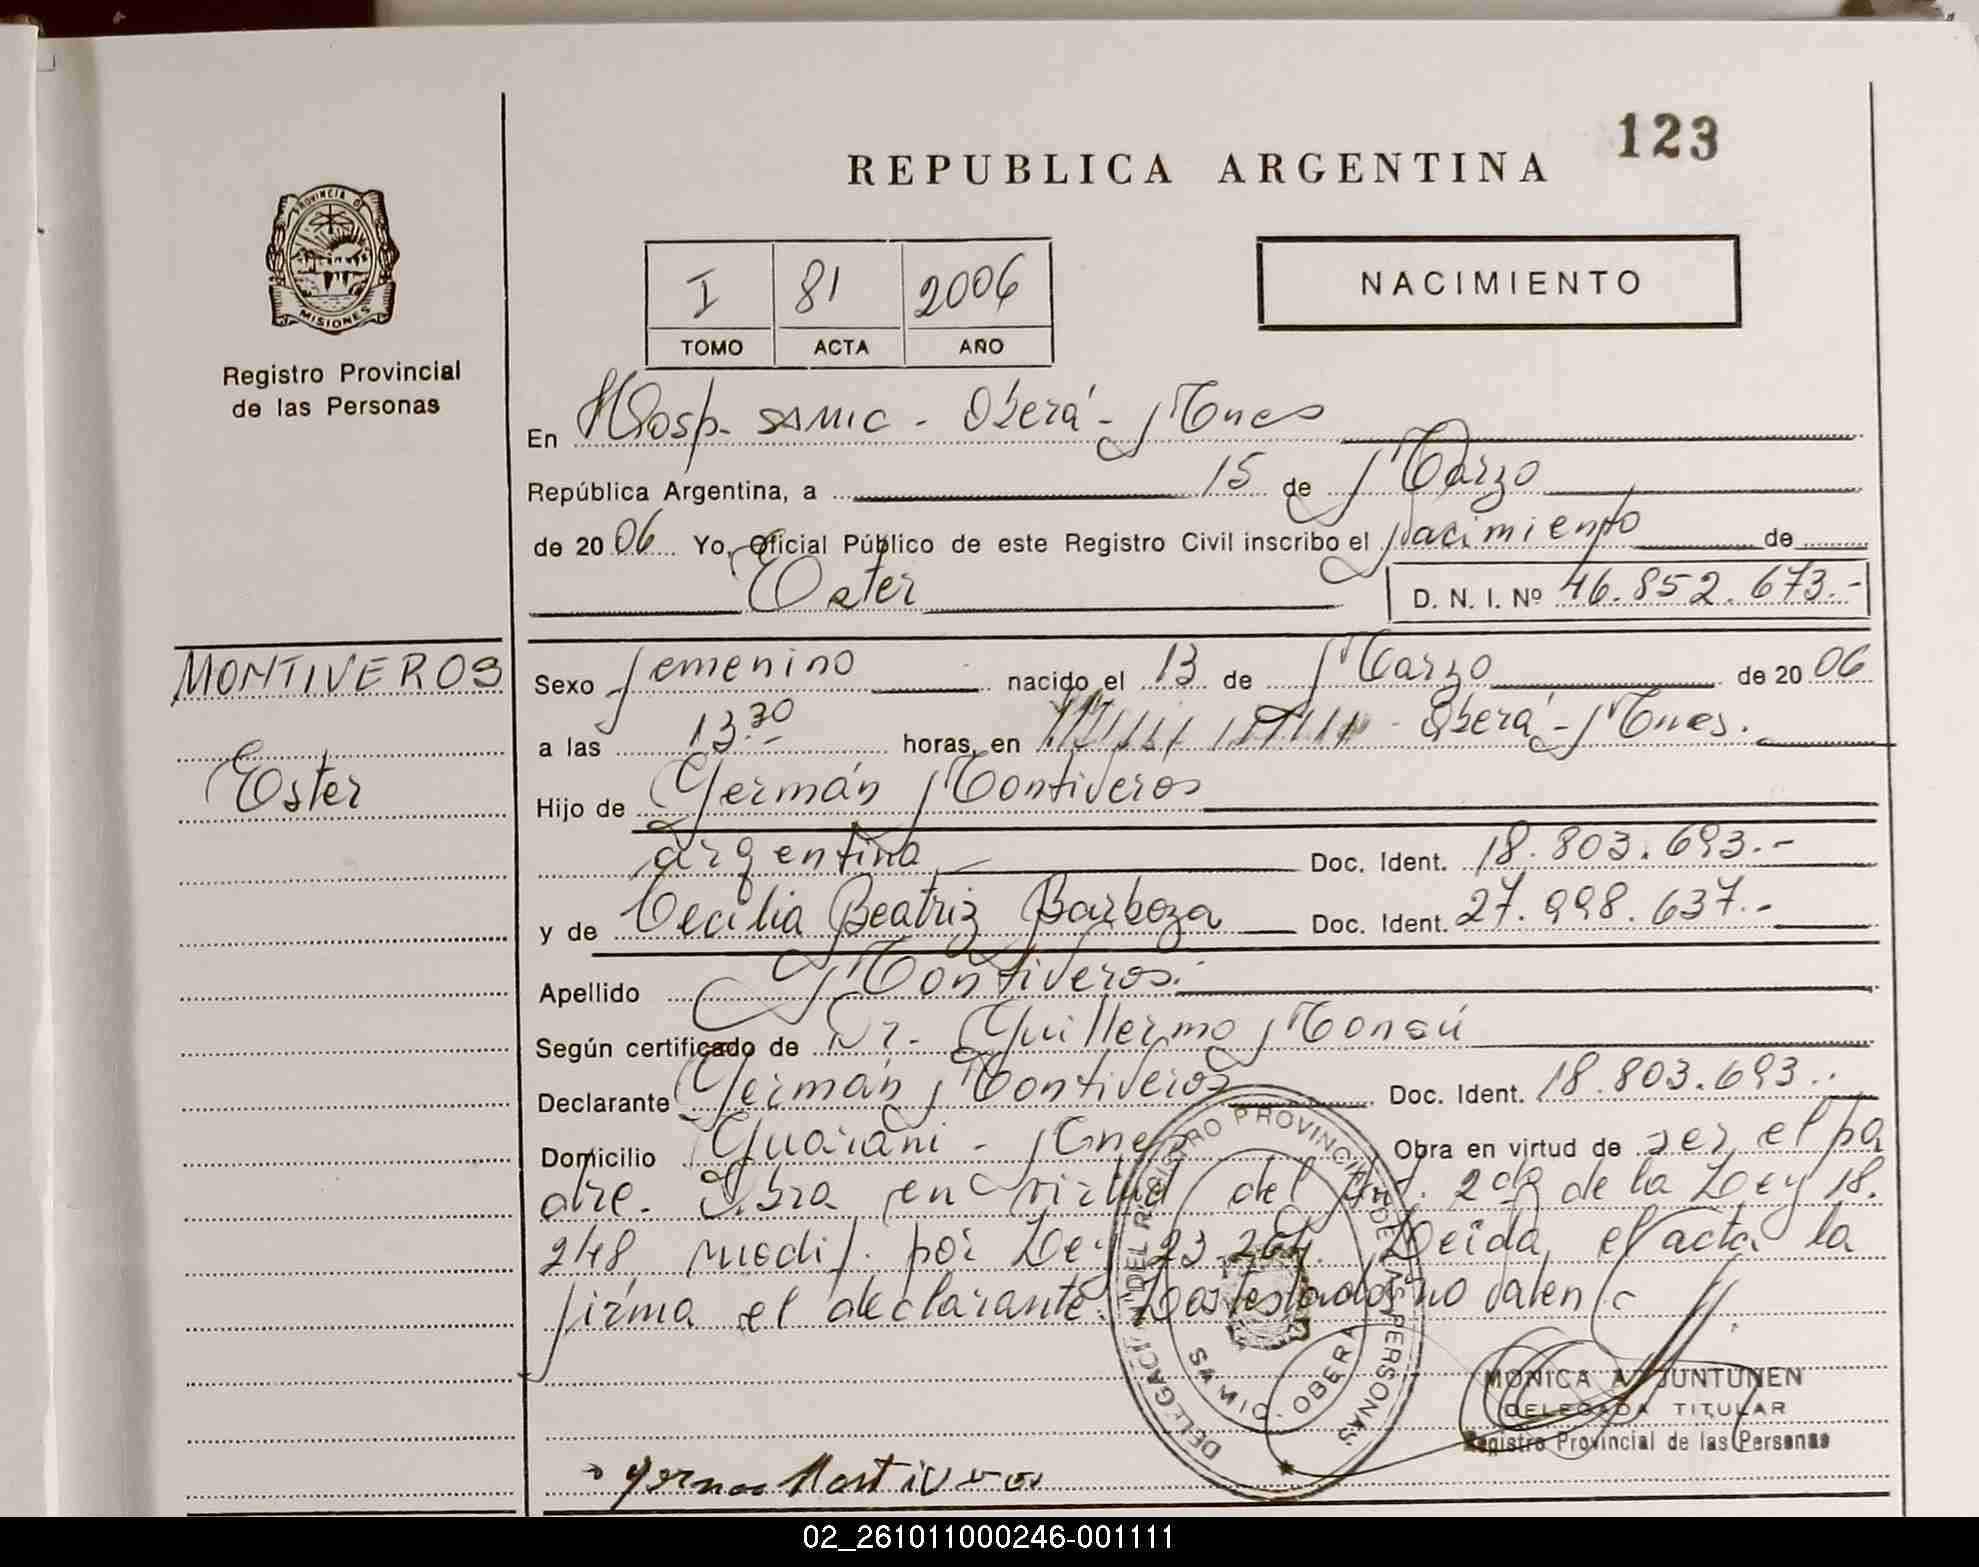 123
REPUBLICA ARGENTINA
PROVINCIA DE
MISIONES
Registro Provincial
de las Personas
I 81 2006
TOMO ACTA AÑO
NACIMIENTO
En Hosp. SAMIC - Oberá - Mnes
República Argentina, a 15 de Marzo
de 2006 Yo, Oficial Público de este Registro Civil inscribo el nacimiento de
Ester
D. N. I. Nº 46.852.673.-
MONTIVEROS
Ester
Sexo femenino nacido el 13 de Marzo de 2006
a las 13.30 horas, en - Oberá - Mnes.
Hijo de Germán Montiveros
argentina Doc. Ident. 18.803.693.-
y de Cecilia Beatriz Barboza Doc. Ident. 27.998.637.-
Apellido Montiveros.
Según certificado de Dr. Guillermo Monsú
Declarante Germán Montiveros Doc. Ident. 18.803.693..
Domicilio Guarani - Mnes Obra en virtud de ser el pa
dre. Obra en virtud del Art. 2do de la Ley 18.
248 modif. por Ley 23.264. Leida el acta la
firma el declarante. Lo testado no valen
DELEGACION DEL REGISTRO PROVINCIAL DE LAS PERSONAS
SAMIC - OBERA
MONICA A. JUNTUNEN
DELEGADA TITULAR
Registro Provincial de las Personas
02_261011000246-001111